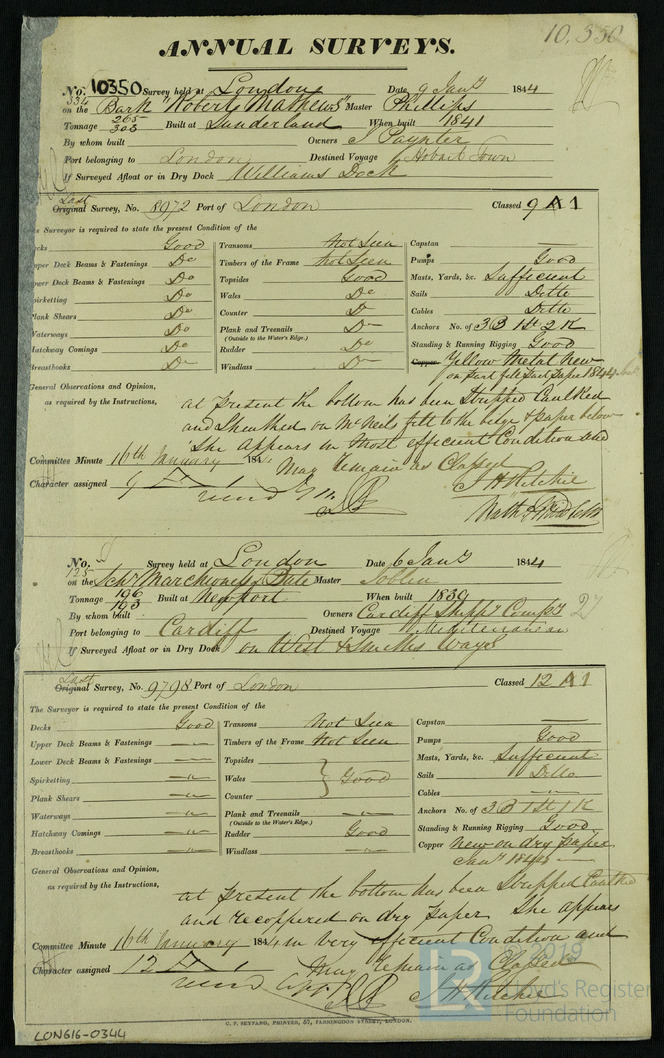 10,350
ANNUAL SURVEYS.
No. 10350 Survey held at London Date 9 Jany 1844
334
on the Bark "Robert Mathews" Master Phillips
Tonnage 265 Built at Sunderland When built 1841
303
By whom built Owners J Paynter
Port belonging to London Destined Voyage Hobart Town
If Surveyed Afloat or in Dry Dock Williams Dock
Last
Original Survey, No. 8972 Port of London Classed 9 A 1
The Surveyor is required to state the present Condition of the
Decks Good Transoms Not Seen Capstan
Upper Deck Beams & Fastenings Do Timbers of the Frame Not Seen Pumps Good
Lower Deck Beams & Fastenings Do Topsides Good Masts, Yards, &c. Sufficient
Spirketting Do Wales Do Sails Ditto
Plank Shears Do Counter D Cables Ditto
Waterways Do Plank and Treenails Do Anchors No. of 3 B 1 St 2 K
(Outside to the Water's Edge.)
Hatchway Comings Do Rudder Do Standing & Running Rigging Good
Breasthooks Do Windlass Do Copper Yellow Metal New
on part felt part paper 1844
General Observations and Opinion,
as required by the Instructions,
at present the bottom has been Stripped Caulked
and Sheathed on McNeils felt to the bilge & paper below
She appears in most efficient Condition and
Committee Minute 16th January 184 May Remain as Classed
Character assigned 9 A 1 J H Ritchie
No. Survey held at London Date 6 Jany 1844
125
on the Schr Marchioness Bute Master
Tonnage 196 Built at Newport When built 1839
193
By whom built Owners Cardiff Shippg Compy 27
Port belonging to Cardiff Destined Voyage Mediterranean
If Surveyed Afloat or in Dry Dock on West & Smiths Ways
Last
Original Survey, No. 9798 Port of London Classed 12 A 1
The Surveyor is required to state the present Condition of the
Decks Good Transoms Not Seen Capstan
Upper Deck Beams & Fastenings Timbers of the Frame Not Seen Pumps Good
Lower Deck Beams & Fastenings Topsides Masts, Yards, &c. Sufficient
Spirketting Wales Good Sails Ditto
Plank Shears Counter Cables
Waterways Plank and Treenails Anchors No. of 3 B 1 St 1 K
(Outside to the Water's Edge.)
Hatchway Comings Rudder Good Standing & Running Rigging Good
Breasthooks Windlass Copper New on dry paper
Jany 1844
General Observations and Opinion,
as required by the Instructions,
at present the bottom has been Stripped Caulked
and recoppered on dry paper She appears
Committee Minute 16th January 1844 in very efficient Condition and
Character assigned 12 A 1 May Remain as Classed
J H Ritchie
C. F. SEYFANG, PRINTER, 57, FARRINGDON STREET, LONDON.
LON616-0344
© 2019
LR
Lloyd's Register
Foundation